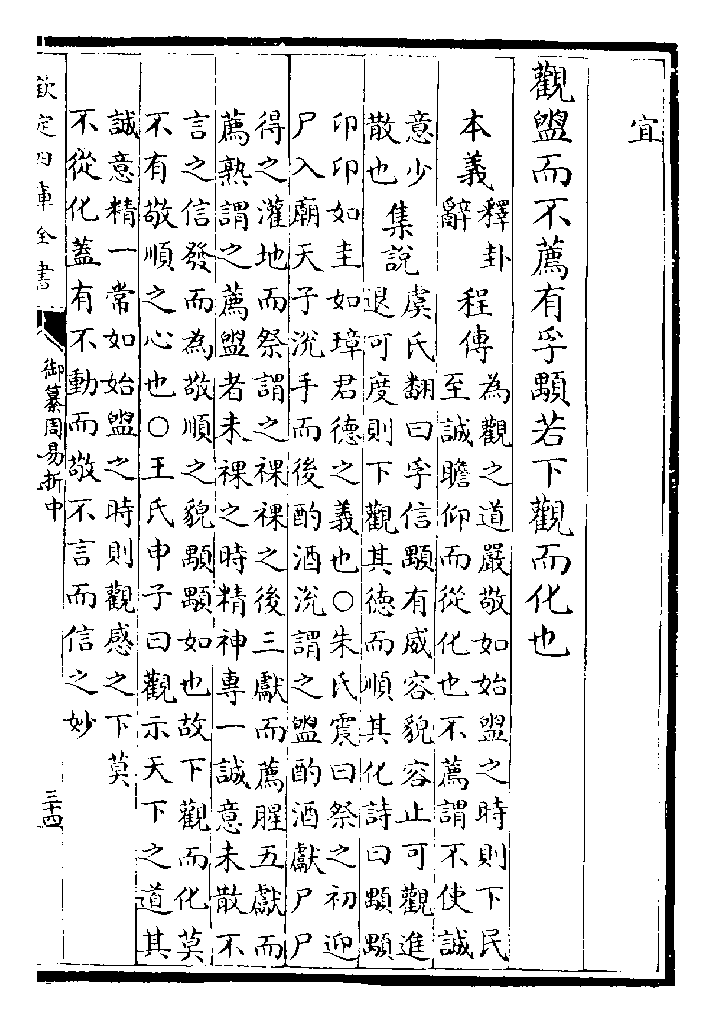 宜
觀盥而不薦有孚顒若下觀而化也
本義
釋卦
辭
程傳
為觀之道嚴敬如始盥之時則下民
至誠瞻仰而從化也不薦謂不使誠
意少
散也
集說
虞氏翻曰孚信顒有威容貌容止可觀進
退可度則下觀其德而順其化詩曰顒顒
印印如圭如璋君德之義也○朱氏震曰祭之初迎
尸入廟天子洗手而後酌酒洗謂之盥酌酒獻尸尸
得之灌地而祭謂之祼祼之後三獻而薦腥五獻而
薦熟謂之薦盥者未祼之時精神專一誠意未散不
言之信發而為敬順之貌顒顒如也故下觀而化莫
不有敬順之心也○王氏申子曰觀示天下之道其
誠意精一常如始盥之時則觀感之下莫
不從化蓋有不動而敬不言而信之妙
欽定四庫全書
御纂周易折中
三十四